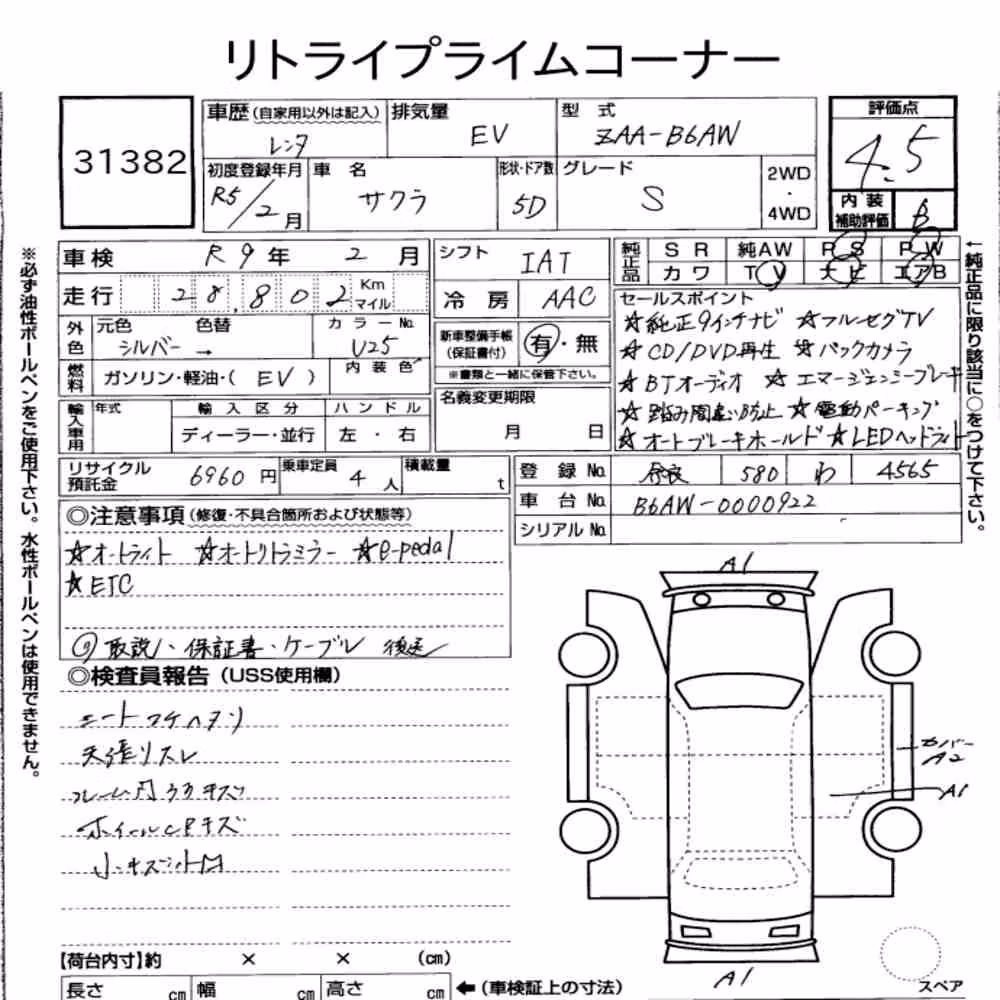 リトライプライムコーナー
31382
車歴(自家用以外は記入) レンタ
排気量 EV
型式 ZAA-B6AW
評価点 4.5
内装補助評価 B
初度登録年月 R5/2月
車名 サクラ
形状・ドア数 5D
グレード S
2WD・4WD
車検 R9年 2月
走行 28,802 Km マイル
シフト IAT
冷房 AAC
純正品 SR 純AW PS PW
カワ TV ナビ エアB
外色 元色 シルバー 色替 → カラーNo. U25
内装色
燃料 ガソリン・軽油・(EV)
新車整備手帳(保証書付) 有・無
※書類と一緒に保管下さい。
輸入車用 年式 輸入区分 ハンドル
ディーラー・並行 左・右
名義変更期限 月 日
セールスポイント
☆純正9インチナビ ☆フルセグTV
☆CD/DVD再生 ☆バックカメラ
☆BTオーディオ ☆エマージェンシーブレーキ
☆踏み間違い防止 ☆電動パーキング
☆オートブレーキホールド ☆LEDヘッドライト
リサイクル預託金 6960円
乗車定員 4人
積載量 t
登録No. 奈良 580 わ 4565
車台No. B6AW-0000922
シリアルNo.
◎注意事項(修復・不具合箇所および状態等)
☆オートライト ☆オートリトラミラー ☆e-pedal
☆ETC
取説・保証書・ケーブル 後送
◎検査員報告(USS使用欄)
シートコゲハヌリ
天張リスレ
フレーム内ウラキズ
小キズ凹
A1
カバー A2
A1
A1
スペア
【荷台内寸】約 × × (cm)
長さ cm 幅 cm 高さ cm ←(車検証上の寸法)
※必ず油性ボールペンをご使用下さい。水性ボールペンは使用できません。
←純正品に限り該当に○をつけて下さい。